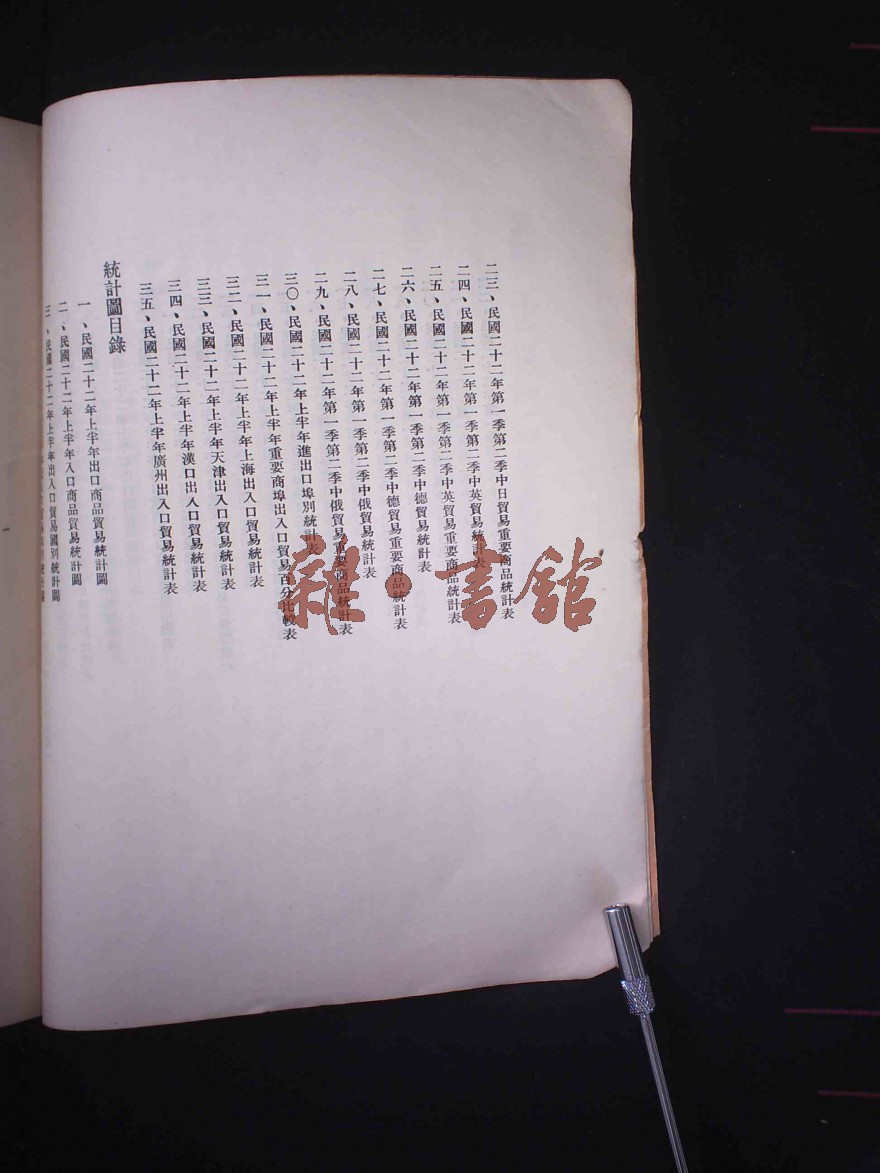 二三、民國二十二年第一季第二季中日貿易重要商品統計表
二四、民國二十二年第一季第二季中英貿易統計表
二五、民國二十二年第一季第二季中英貿易重要商品統計表
二六、民國二十二年第一季第二季中德貿易統計表
二七、民國二十二年第一季第二季中德貿易重要商品統計表
二八、民國二十二年第一季第二季中俄貿易統計表
二九、民國二十二年第一季第二季中俄貿易重要商品統計表
三〇、民國二十二年上半年進出口埠別統計表
三一、民國二十二年上半年重要商埠出入口貿易百分比較表
三二、民國二十二年上半年上海出入口貿易統計表
三三、民國二十二年上半年天津出入口貿易統計表
三四、民國二十二年上半年漢口出入口貿易統計表
三五、民國二十二年上半年廣州出入口貿易統計表
統計圖目錄
一、民國二十二年上半年出口商品貿易統計圖
二、民國二十二年上半年入口商品貿易統計圖
三、民國二十二年上半年出入口貿易國別統計圖
雜·書館